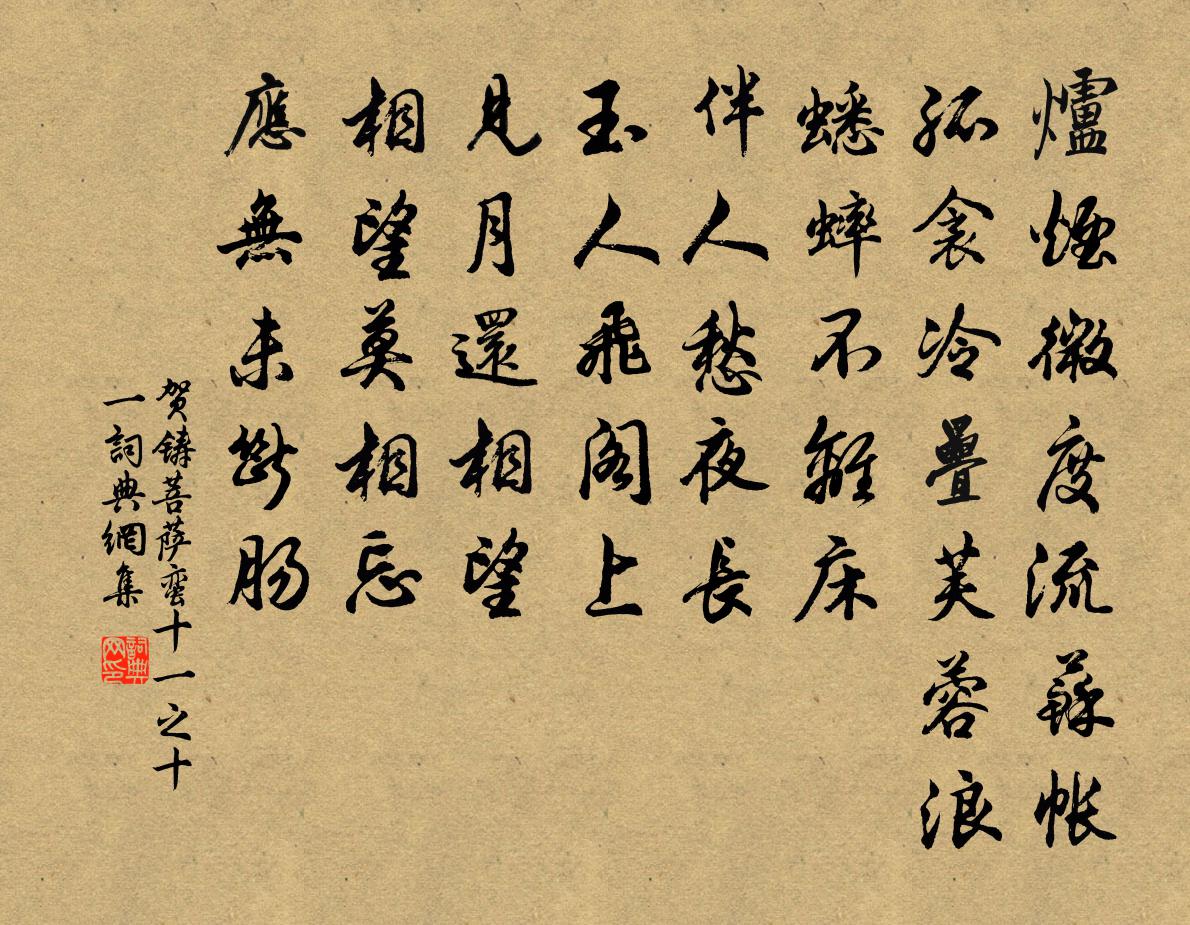 爐煙微度流蘇帳
孤衾冷疊芙蓉浪
蟋蟀不離床
伴人愁夜長
玉人飛閣上
見月還相望
相望莫相忘
應無未斷腸
贺鑄菩萨蛮十一之十
一詞典網集
詞典网印